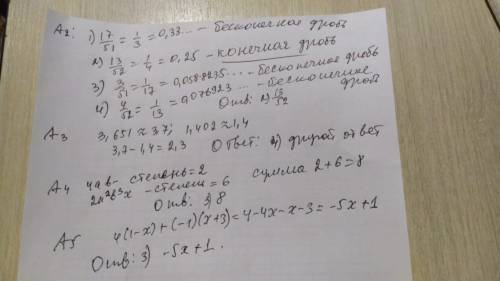 A2: 1) 17/51 = 1/3 = 0,33... - бесконечная дробь
2) 13/52 = 1/4 = 0,25 - конечная дробь
3) 3/51 = 1/17 = 0,0588235... - бесконечная дробь
4) 4/52 = 1/13 = 0,076923... - бесконечная дробь
Отв: 2) 13/52
A3 3,651 ≈ 3,7; 1,402 ≈ 1,4
3,7 - 1,4 = 2,3 Ответ: 4) другой ответ
A4 4ab - степень = 2
2a²b³x - степень = 6 сумма 2+6=8
Отв: 3) 8
A5 4(1-x) + (-1)(x+3) = 4-4x-x-3 = -5x+1
Отв: 3) -5x+1.